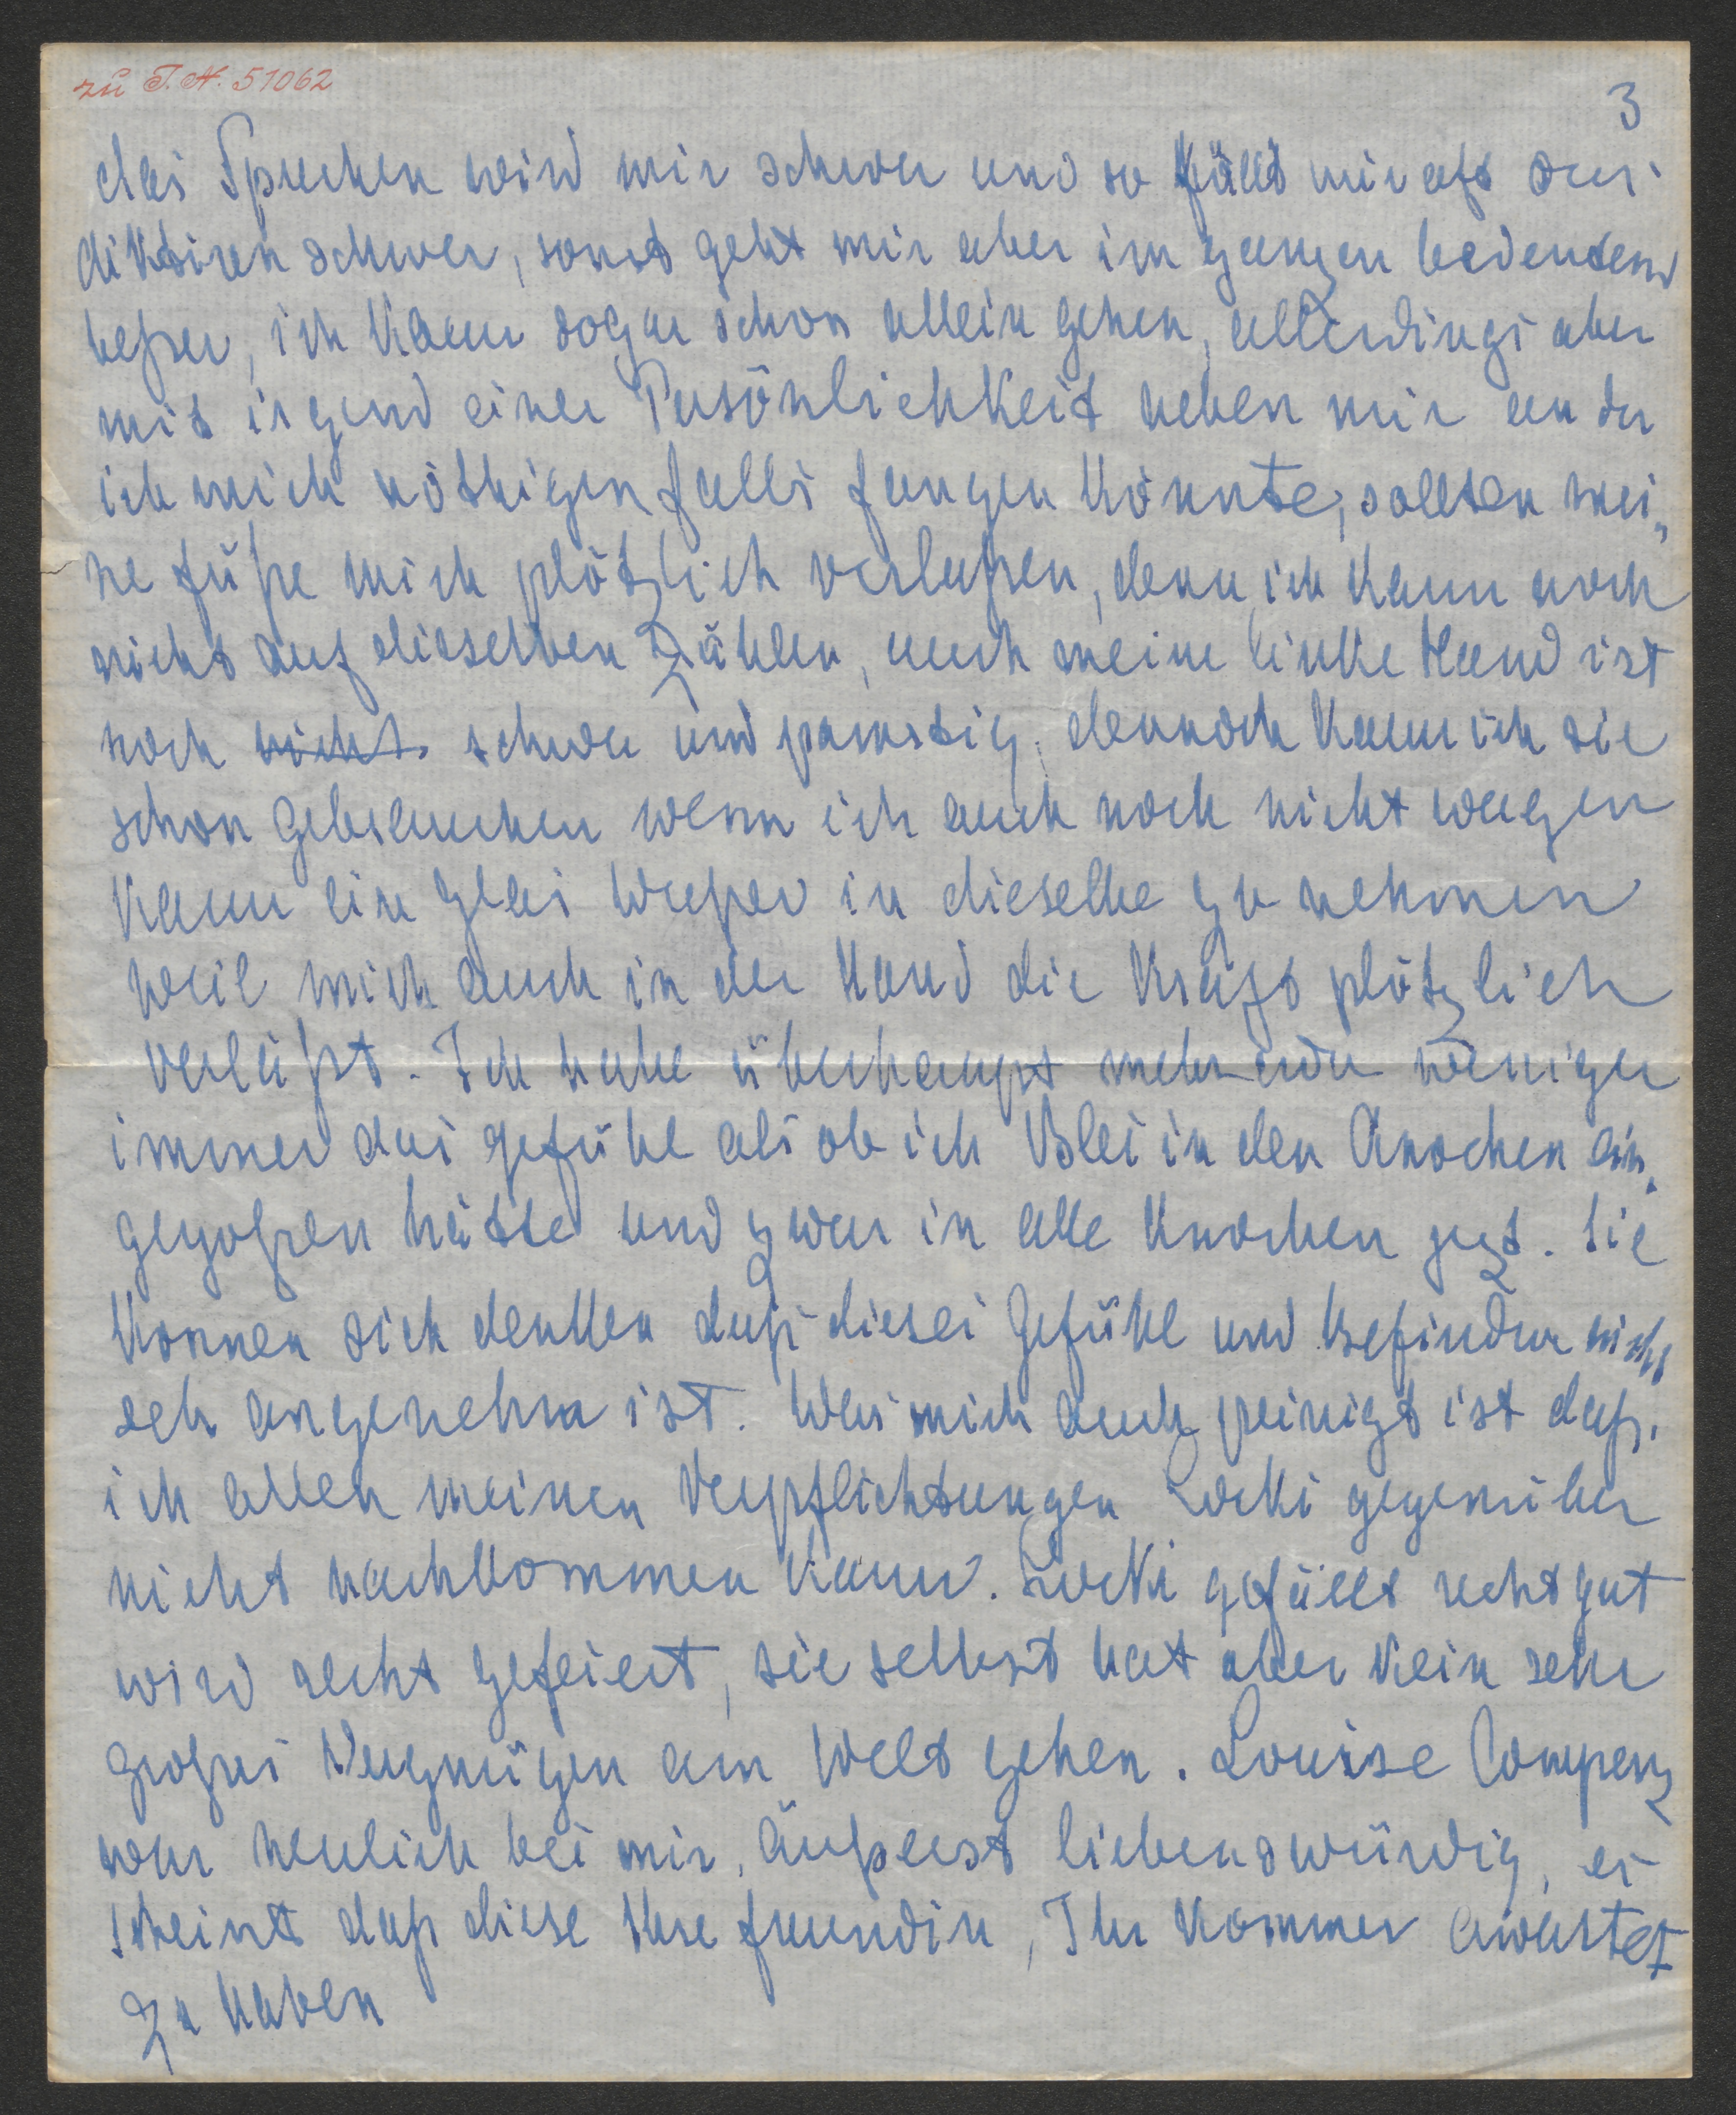 zu I.N. 51062
3
das Sprechen wird mir schwer und so fällt mir oft das
diktiren schwer, sonst geht mir aber im ganzen bedeutend
beßer, ich kann sogar schon allein gehen, allerdings aber
mit irgend einer Persönlichkeit neben mir an der
ich mich nöthigenfalls fangen könnte, sollten mei„
ne füße mich plötzlich verlaßen, denn ich kann noch
nicht auf dieselben zählen, auch meine linke Hand ist
noch nicht schwer und pamstig, dennoch kann ich sie
schon gebrauchen wenn ich auch noch nicht wagen
kann ein glas waßer in dieselbe zu nehmen
weil mich auch in der Hand die Kraft plötzlich
verläßt. Ich habe überhaupt mehr oder weniger
immer das gefühl als ob ich Blei in den Knochen ein„
gegoßen hätte und zwar in alle Knochen
Sie
können sich denken daß dieses Gefühl und Befinden nicht
sehr angenehm ist. Was mich auch peinigt ist daß
ich allen meinen Verpflichtungen gegenüber
nicht nachkommen kann. gefällt recht gut
wird recht gefeiert, sie selbst hat aber kein sehr
großes Vergnügen am Welt gehen. Louise
war neulich bei mir, äußerst liebenswürdig, es
scheint daß diese Ihre freundin, Ihr Kommen erwartet
zu haben